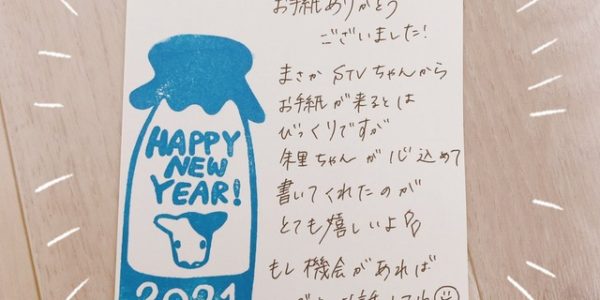 お手紙ありがとう
ございました!
まさか STVちゃんから
お手紙が来るとは
びっくりですが
朱里ちゃんが心込めて
書いてくれたのが
とても嬉しいよ
もし機会があれば
HAPPY
NEW
YEAR!
2021